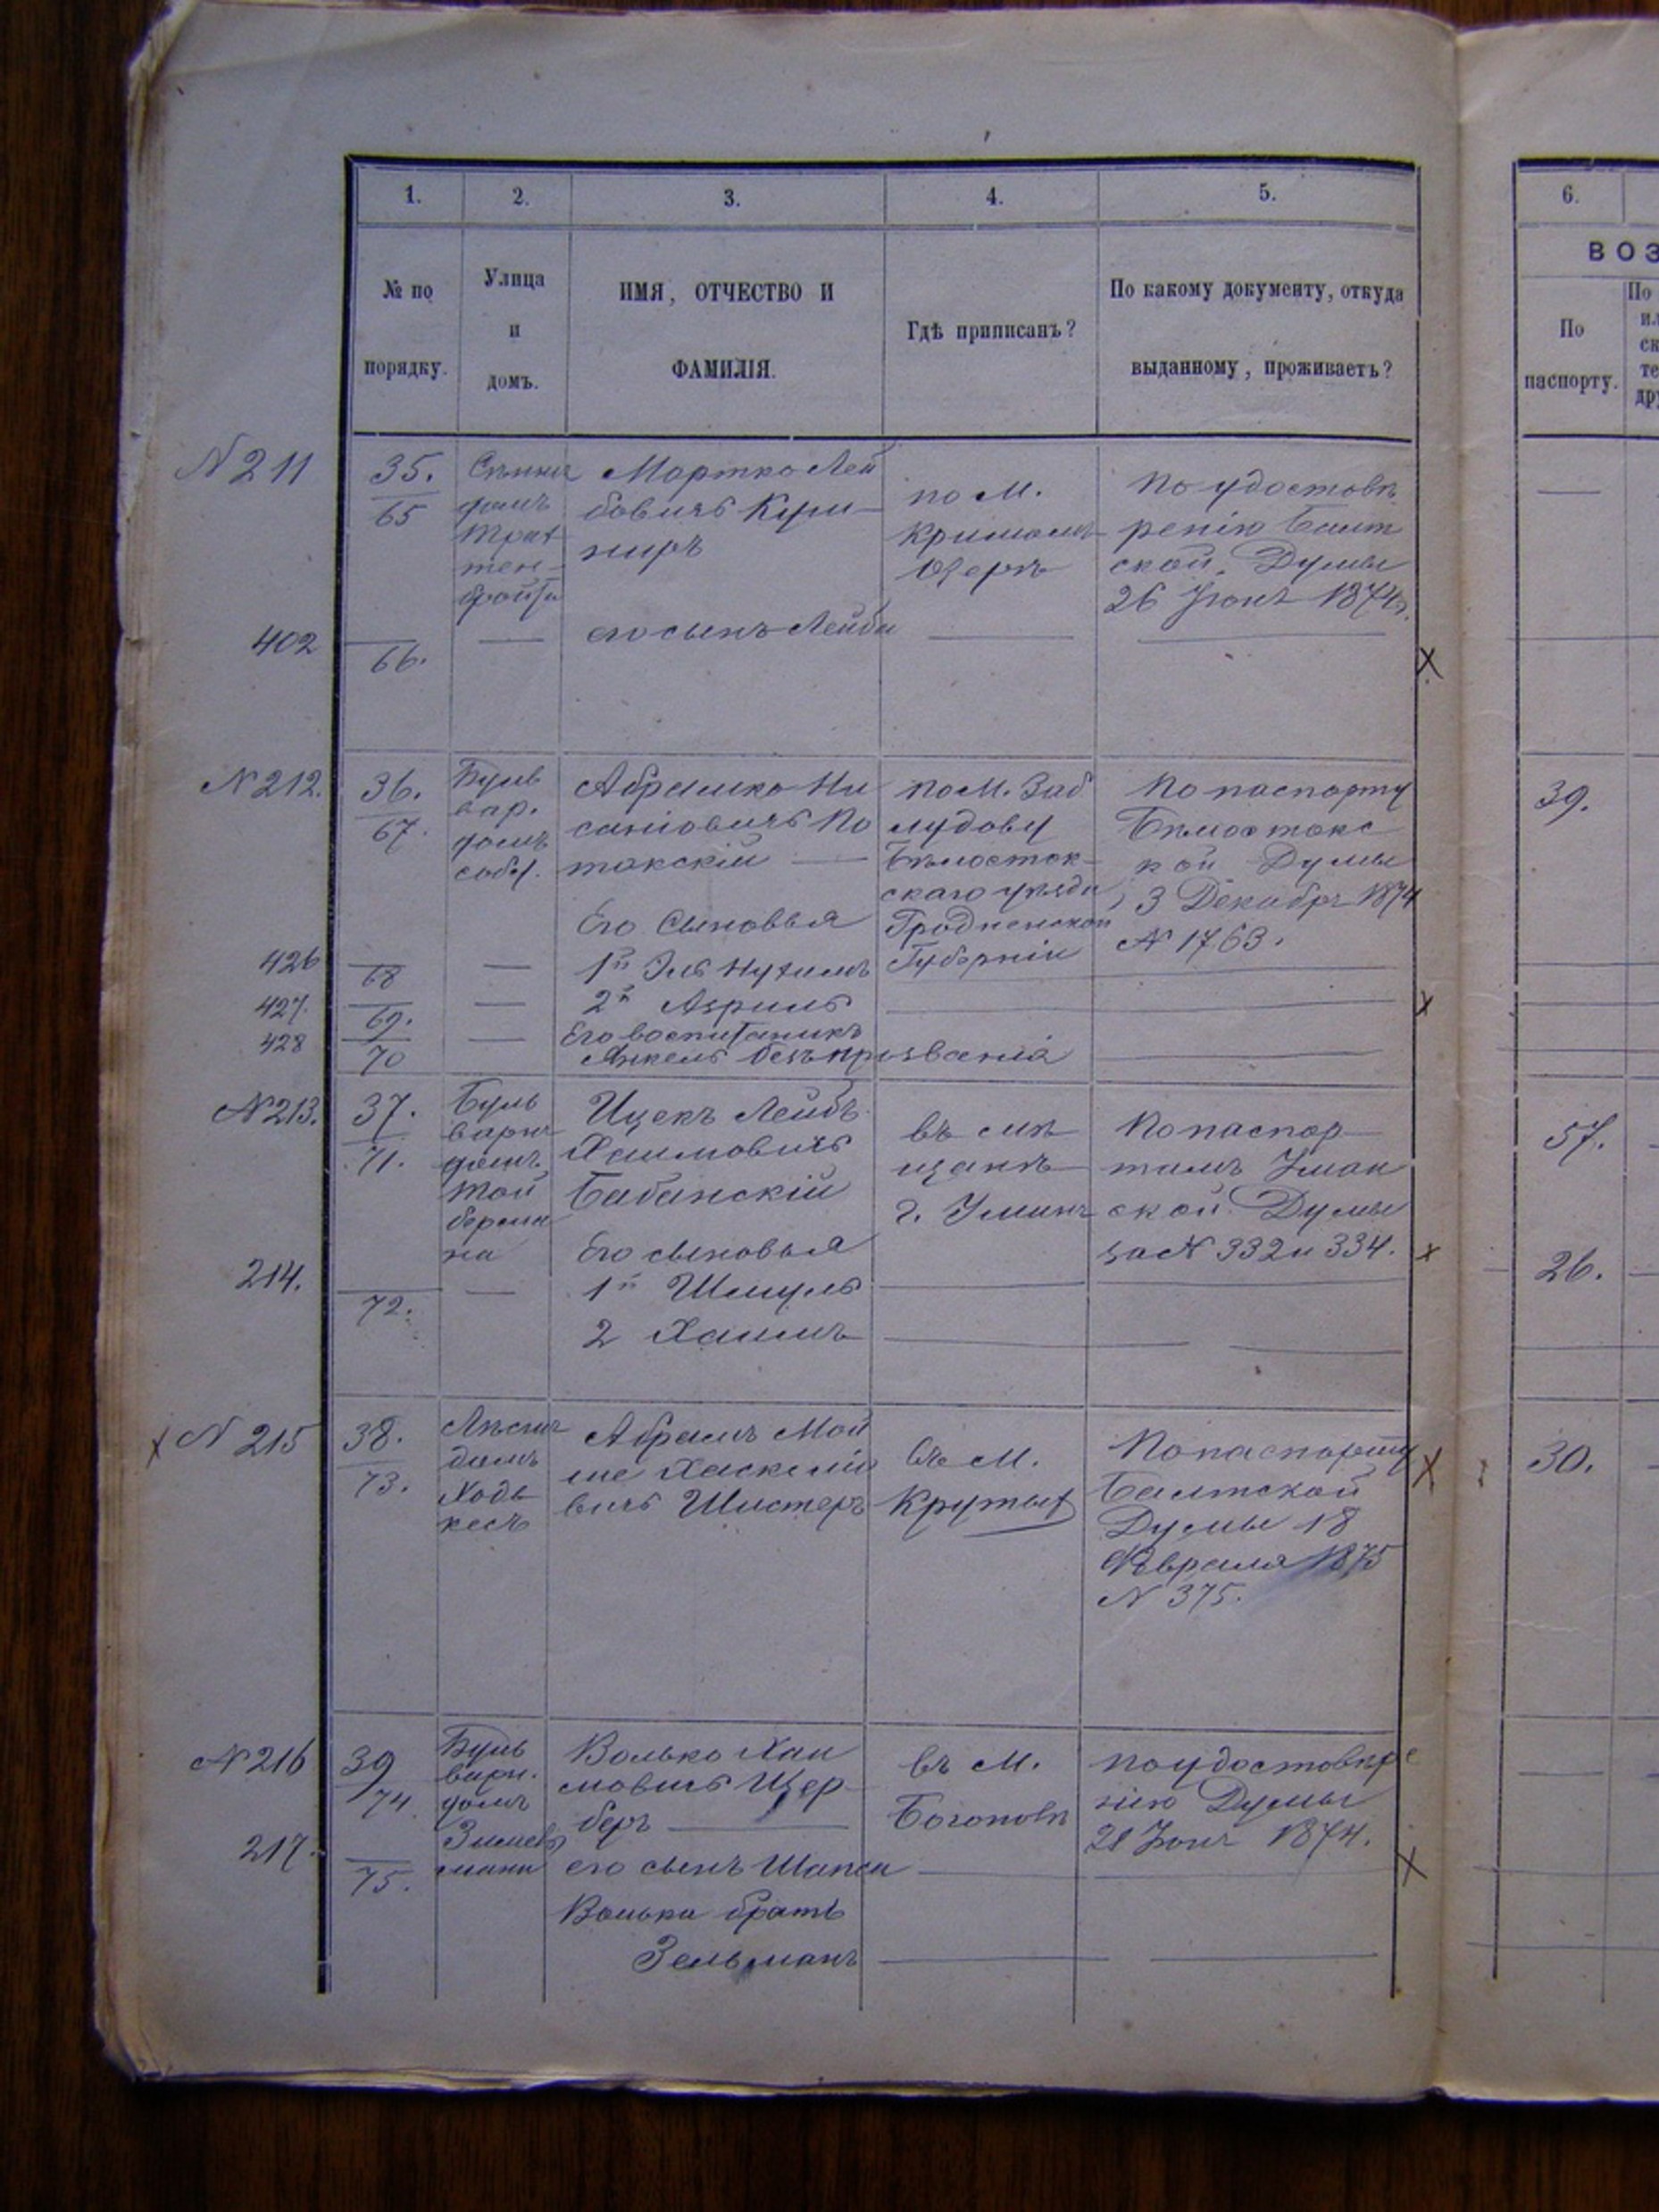 1. 2. 3. 4. 5. 6.
№ по порядку.
Улица и домъ.
ИМЯ, ОТЧЕСТВО И ФАМИЛІЯ.
Гдѣ приписанъ?
По какому документу, откуда выданному, проживаетъ?
ВОЗ
По паспорту.
N 211
35.
65
домъ
Мортко Лей
бовичъ
по М.
Кривомъ
Озерѣ
По удостовѣ
ренію Балт
ской Думы
26 Іюня 1874 г.
402
66.
его сынъ Лейба
N 212.
36.
67.
Буль
вар.
домъ
собст.
Абрамко Ни
саніовичъ По
токскій
по М. Заб
лудову
Бѣлосток
скаго уѣзда
Гродненской
Губерніи
По паспорту
Бѣлостокс
кой Думы
3 Декабря 1874
N 1763.
39.
Его Сыновья
426
68
1й Эль Нухимъ
427.
69.
2й Азриль
428
70
Его воспитаникъ
Янкель безъ призванія
N 213.
37.
71.
Буль
варн
домъ
Той
бермա
на
Ицекъ Лейбъ
Хаимовичъ
Бабанскій
въ мѣ
щанѣ
г. Умань
По паспор
тамъ Уман
ской Думы
за N 332 и 334.
57.
Его сыновья
214.
72.
1й Шмуль
26.
2 Хаимъ
N 215
38.
73.
домъ
Ходь
кесъ
Абрамъ Мой
ше Хаскелio
вичъ Шистеръ
въ М.
Крутыя
По паспорту
Балтской
Думы 18
Февраля 1875
N 375.
30.
N 216
39
74
Буль
варн.
домъ
Волько Хаи
мовичъ Щер
беръ
въ М.
Богополѣ
по удостовѣре
нію Думы
21 Іюня 1874.
217.
75.
его сынъ Шапса
Волька братъ
Зельманъ